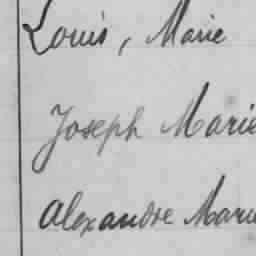 Louis, Marie
Joseph Marie
Alexandre Marie